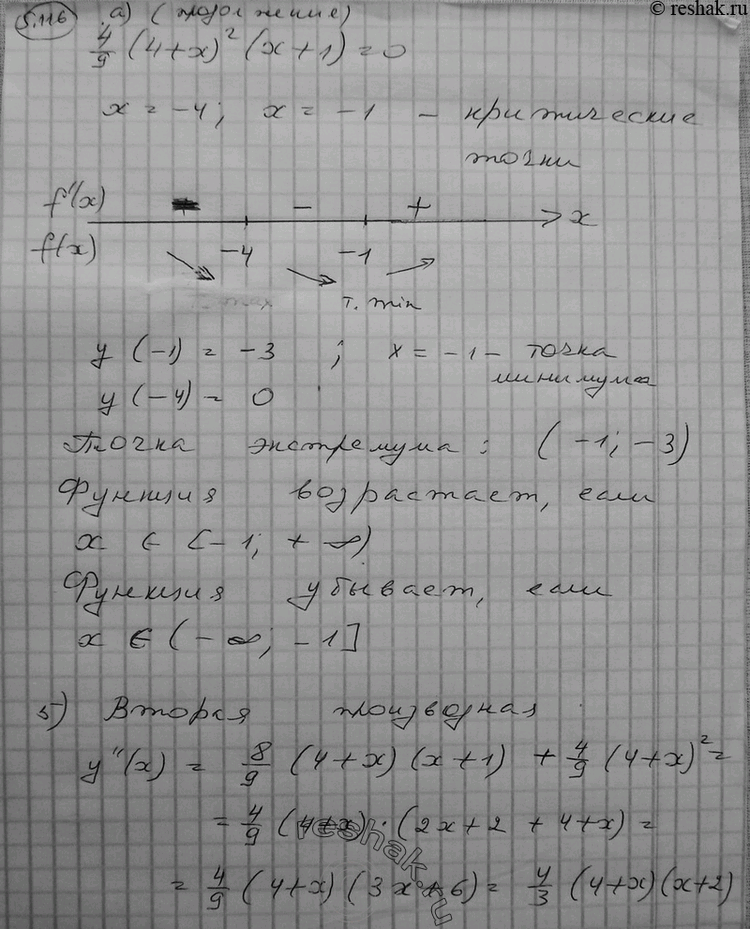 © reshak.ru
5.116 а) (продолжение)
4/9 (4+x)² (x+1) = 0
x = -4; x = -1 - критические
точки
f'(x) - + x
f(x) -4 -1
max т. min
y (-1) = -3 ; x = -1 - точка
минимума
y (-4) = 0
Точка экстремума: (-1; -3)
Функция возрастает, если
x ∈ [-1; +∞)
Функция убывает, если
x ∈ (-∞; -1]
5) Вторая производная
y''(x) = 8/9 (4+x) (x+1) + 4/9 (4+x)² =
= 4/9 (4+x) · (2x+2 + 4+x) =
= 4/9 (4+x) (3x+6) = 4/3 (4+x)(x+2)
reshak.ru